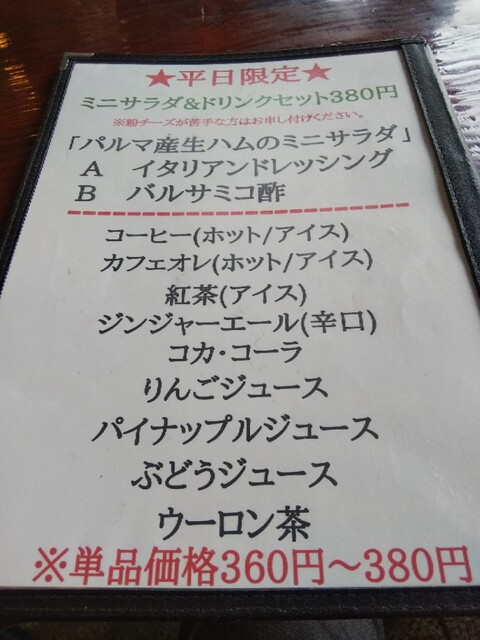 ★平日限定★
ミニサラダ&ドリンクセット380円
※粉チーズが苦手な方はお申し付けください。
「パルマ産生ハムのミニサラダ」
A イタリアンドレッシング
B バルサミコ酢
コーヒー(ホット/アイス)
カフェオレ(ホット/アイス)
紅茶(アイス)
ジンジャーエール(辛口)
コカ・コーラ
りんごジュース
パイナップルジュース
ぶどうジュース
ウーロン茶
※単品価格360円～380円